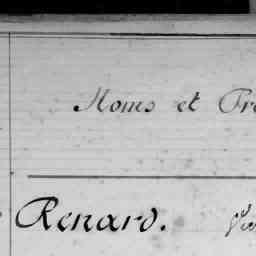 Noms et Pré
Renard.